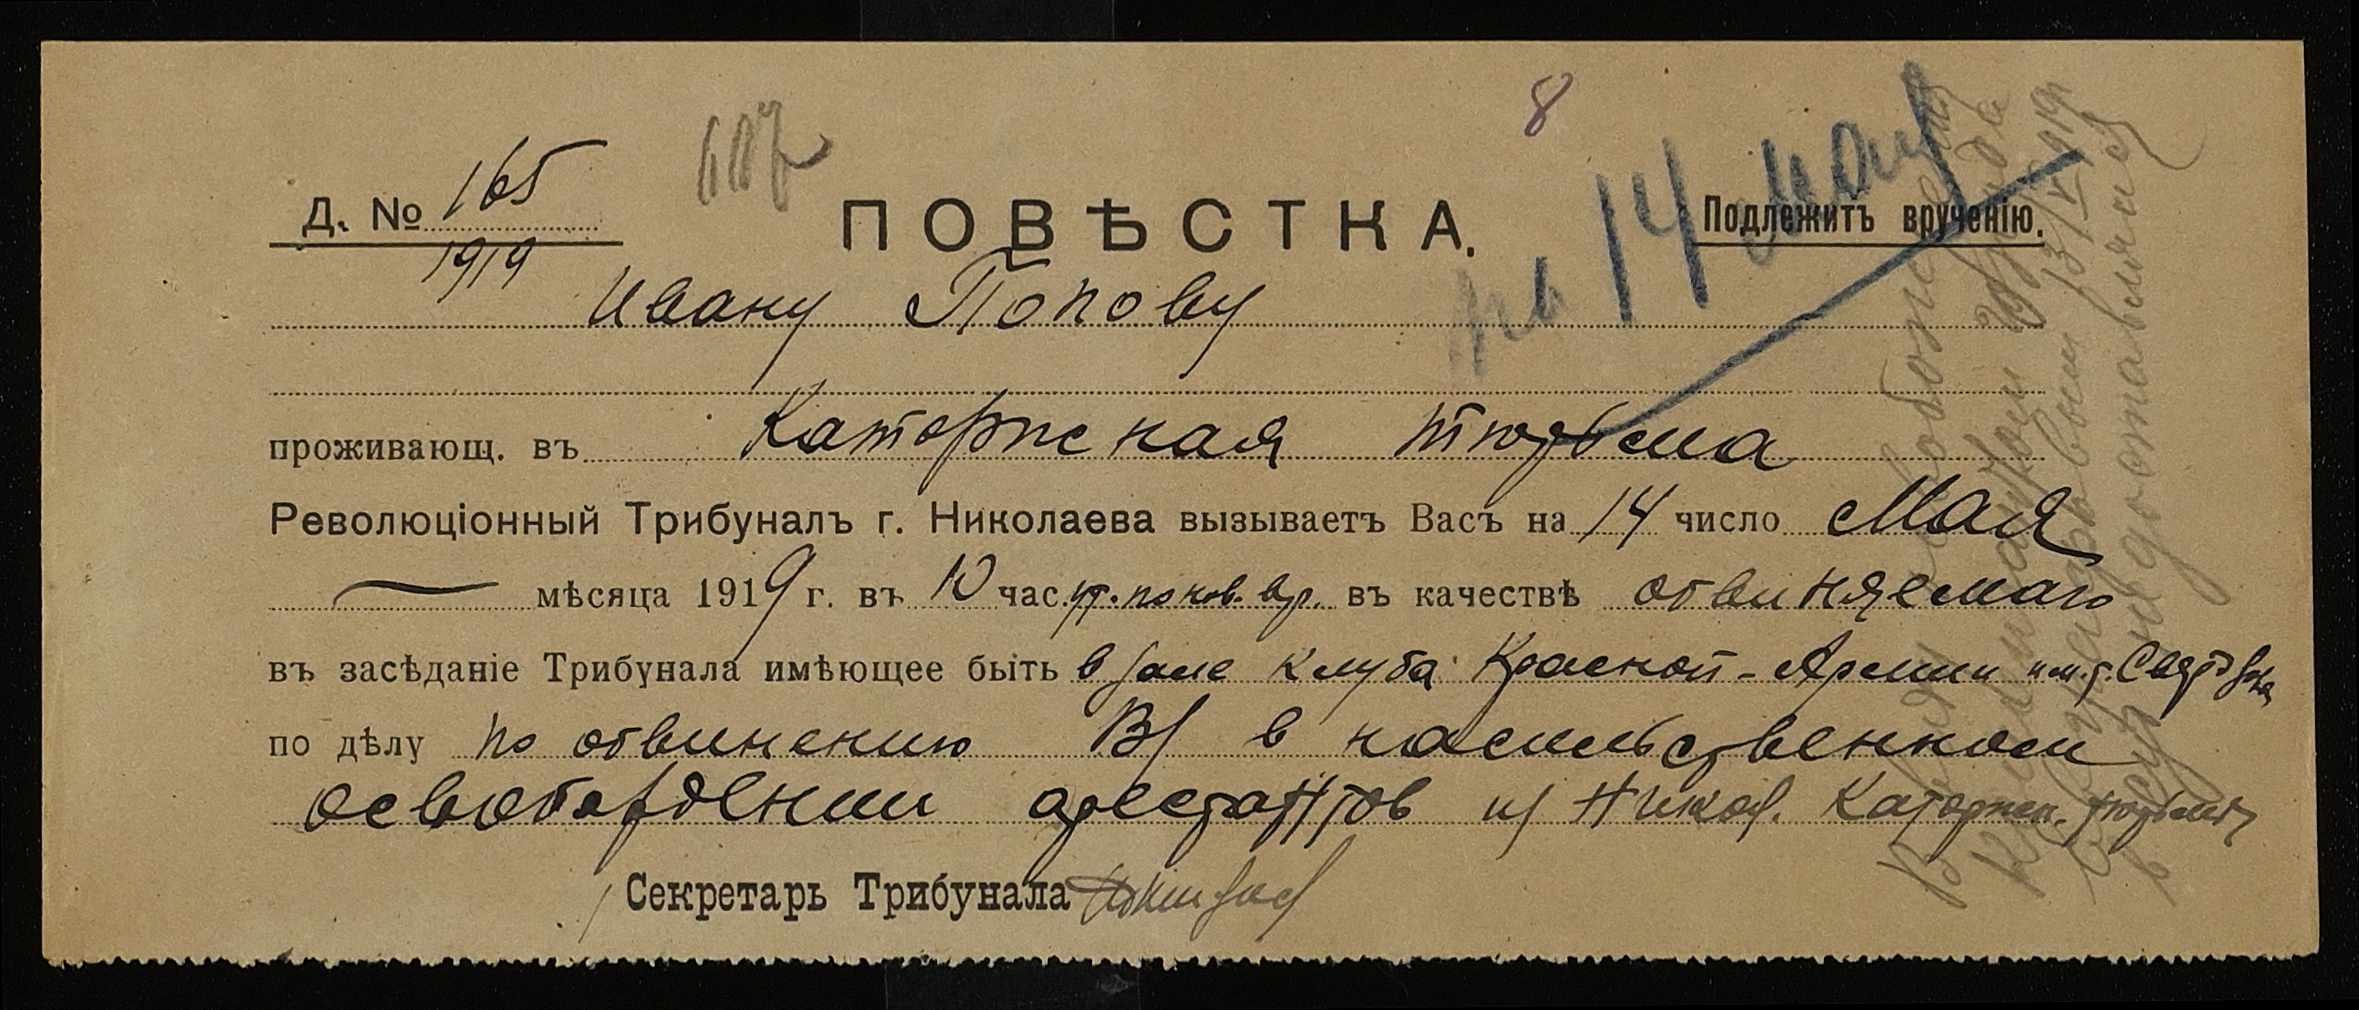 8
Д. № 165
1919
ПОВѢСТКА.
Подлежитъ врученію.
на 14 мая
Ивану Попову
проживающ. въ Каторжская тюрьма
Революціонный Трибуналъ г. Николаева вызываетъ Васъ на 14 число Мая
мѣсяца 1919 г. въ 10 час. ут. по нов. вр. въ качествѣ обвиняемаго
въ засѣданіе Трибунала имѣющее быть в зале клуба Красной-Армии им. т. Свердлова
по дѣлу по обвинению Вз в насильственном
освобождении арестантов из Никол. Каторжн. тюрьмы
Секретарь Трибунала
13/V 1919